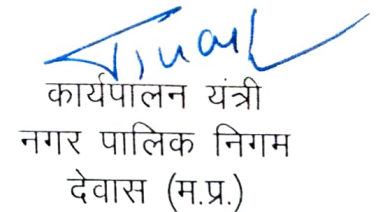 कार्यपालन यंत्री
नगर पालिक निगम
देवास (म.प्र.)